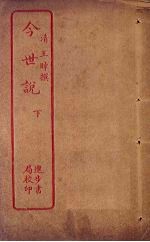 清王晫撰
今世說 下
進步書
局校印